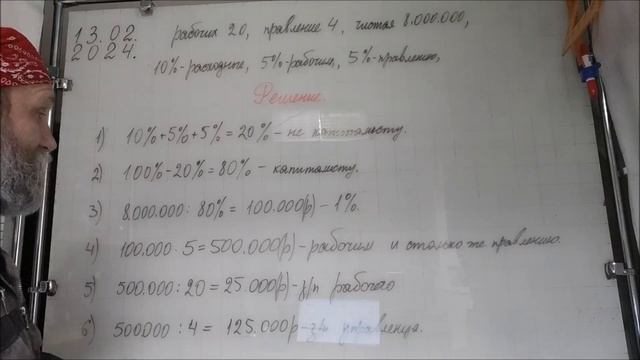 13.02.
2024.
рабочих 20, правление 4, чистая 8.000.000,
10%-расходные, 5%-рабочим, 5%-правлению,
Решение.
1) 10%+5%+5%=20% - не капиталисту.
2) 100%-20%=80% - капиталисту.
3) 8.000.000 : 80% = 100.000(р) - 1%.
4) 100.000 · 5 = 500.000(р) - рабочим и столько же правлению.
5) 500.000 : 20 = 25.000(р) - з/п рабочего
6) 500000 : 4 = 125.000р - з/п управленца.